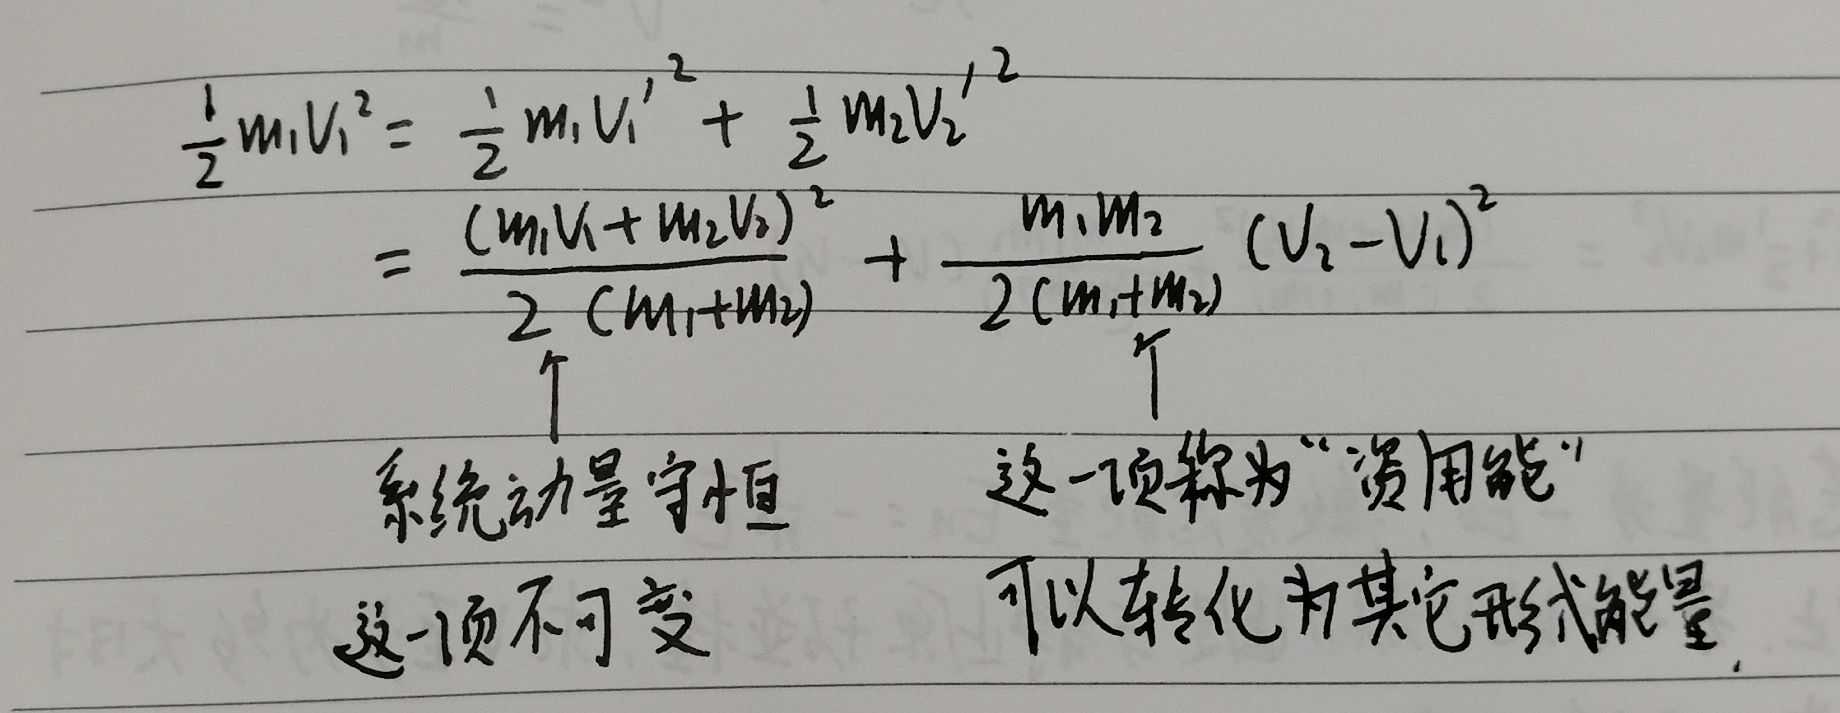 ½m₁V₁² = ½m₁V₁'² + ½m₂V₂'²
= (m₁V₁+m₂V₂)²/2(m₁+m₂) + m₁m₂/2(m₁+m₂) (V₂-V₁)²
↑ ↑
系统动量守恒 这一项称为“资用能”
这一项不可变 可以转化为其它形式能量.